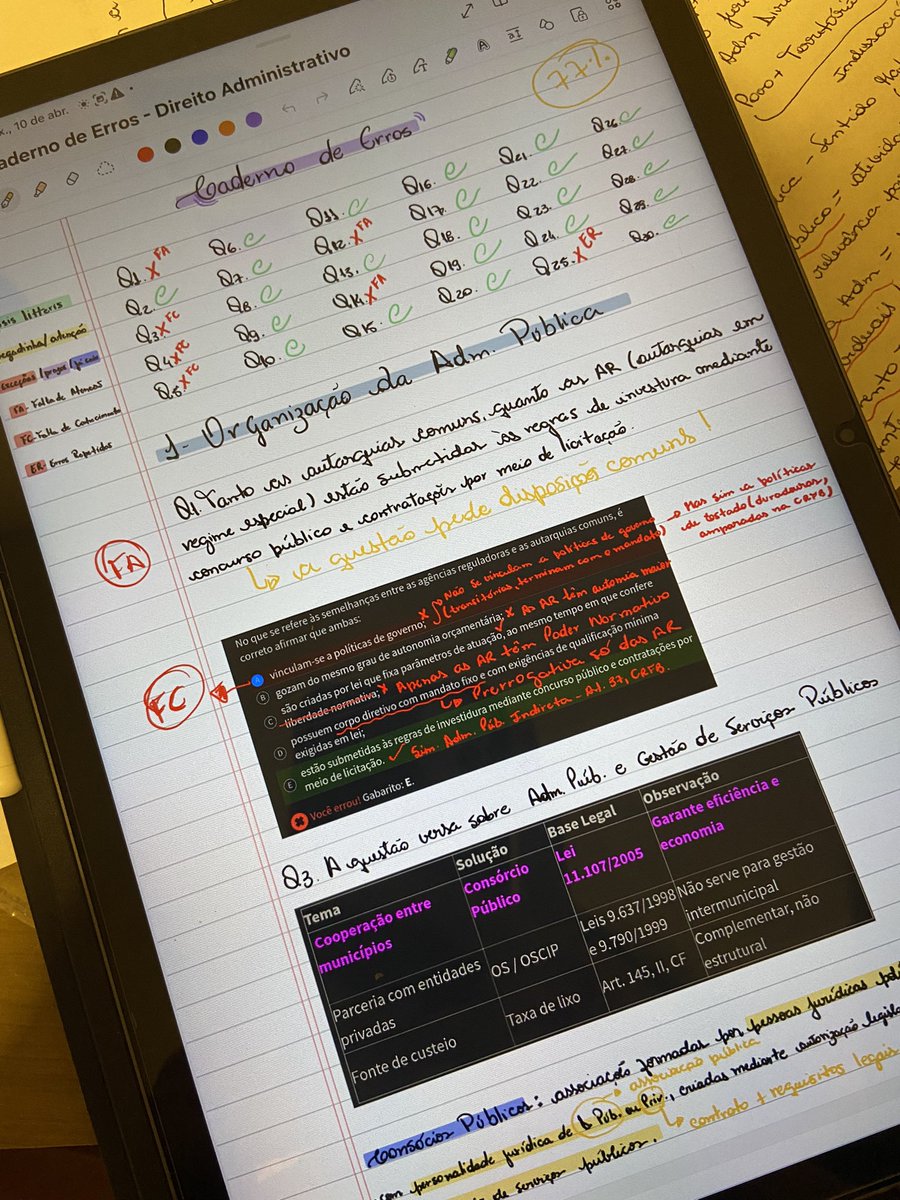 x., 10 de abr.
aderno de Erros - Direito Administrativo
77%
Caderno de Erros
Q1. X FA
Q2. C
Q3. X FC
Q4. X FC
Q5. X FC
Q6. C
Q7. C
Q8. C
Q9. C
Q10. C
Q11. C
Q12. X FA
Q13. C
Q14. X FA
Q15. C
Q16. C
Q17. C
Q18. C
Q19. C
Q20. C
Q21. C
Q22. C
Q23. C
Q24. C
Q25. X ER
Q26. C
Q27. C
Q28. C
Q29. C
Q30. C
sis litteris
pegadinha/atenção
Exceções/prazos/
FA - Falta de Atencao
FC - Falta de Conhecimento
ER - Erros Repetidos
1- Organização da Adm. Pública
Q1. Tanto as autarquias comuns, quanto as AR (autarquias em
regime especial) estão submetidas às regras de investura mediante
concurso público e contratações por meio de licitação.
FA
↳ a questão pede disposições comuns!
No que se refere às semelhanças entre as agências reguladoras e as autarquias comuns, é
correto afirmar que ambas:
A vinculam-se a políticas de governo; X Não se vinculam a políticas de governo → Mas sim a políticas
(transitórias, terminam com o mandato) de estado (duradouras,
amparadas na CRFB)
FC
B gozam do mesmo grau de autonomia orçamentária; X As AR têm autonomia maior
C são criadas por lei que fixa parâmetros de atuação, ao mesmo tempo em que confere
liberdade normativa; X Apenas as AR têm Poder Normativo
D possuem corpo diretivo com mandato fixo e com exigências de qualificação mínima
exigidas em lei; ↳ Prerrogativa só das AR
E estão submetidas às regras de investidura mediante concurso público e contratações por
meio de licitação. ✓ Sim. Adm. Púb. Indireta - At. 37, CRFB.
Você errou! Gabarito: E.
Q3. A questão versa sobre Adm. Púb. e Gestão de Serviços Públicos
Tema Solução Base Legal Observação
Cooperação entre municípios Consórcio Público Lei 11.107/2005 Garante eficiência e economia
Parceria com entidades privadas OS / OSCIP Leis 9.637/1998 e 9.790/1999 Não serve para gestão intermunicipal
Fonte de custeio Taxa de lixo Art. 145, II, CF Complementar, não estrutural
Consócios Públicos: associação formadas por pessoas jurídicas
associação pública
com personalidade jurídica de D. Púb. ou Priv., criadas mediante autorização
↳ contrato + requisitos legais
de serviços públicos.
Povo + Território
Sentido
relevância
Adm =